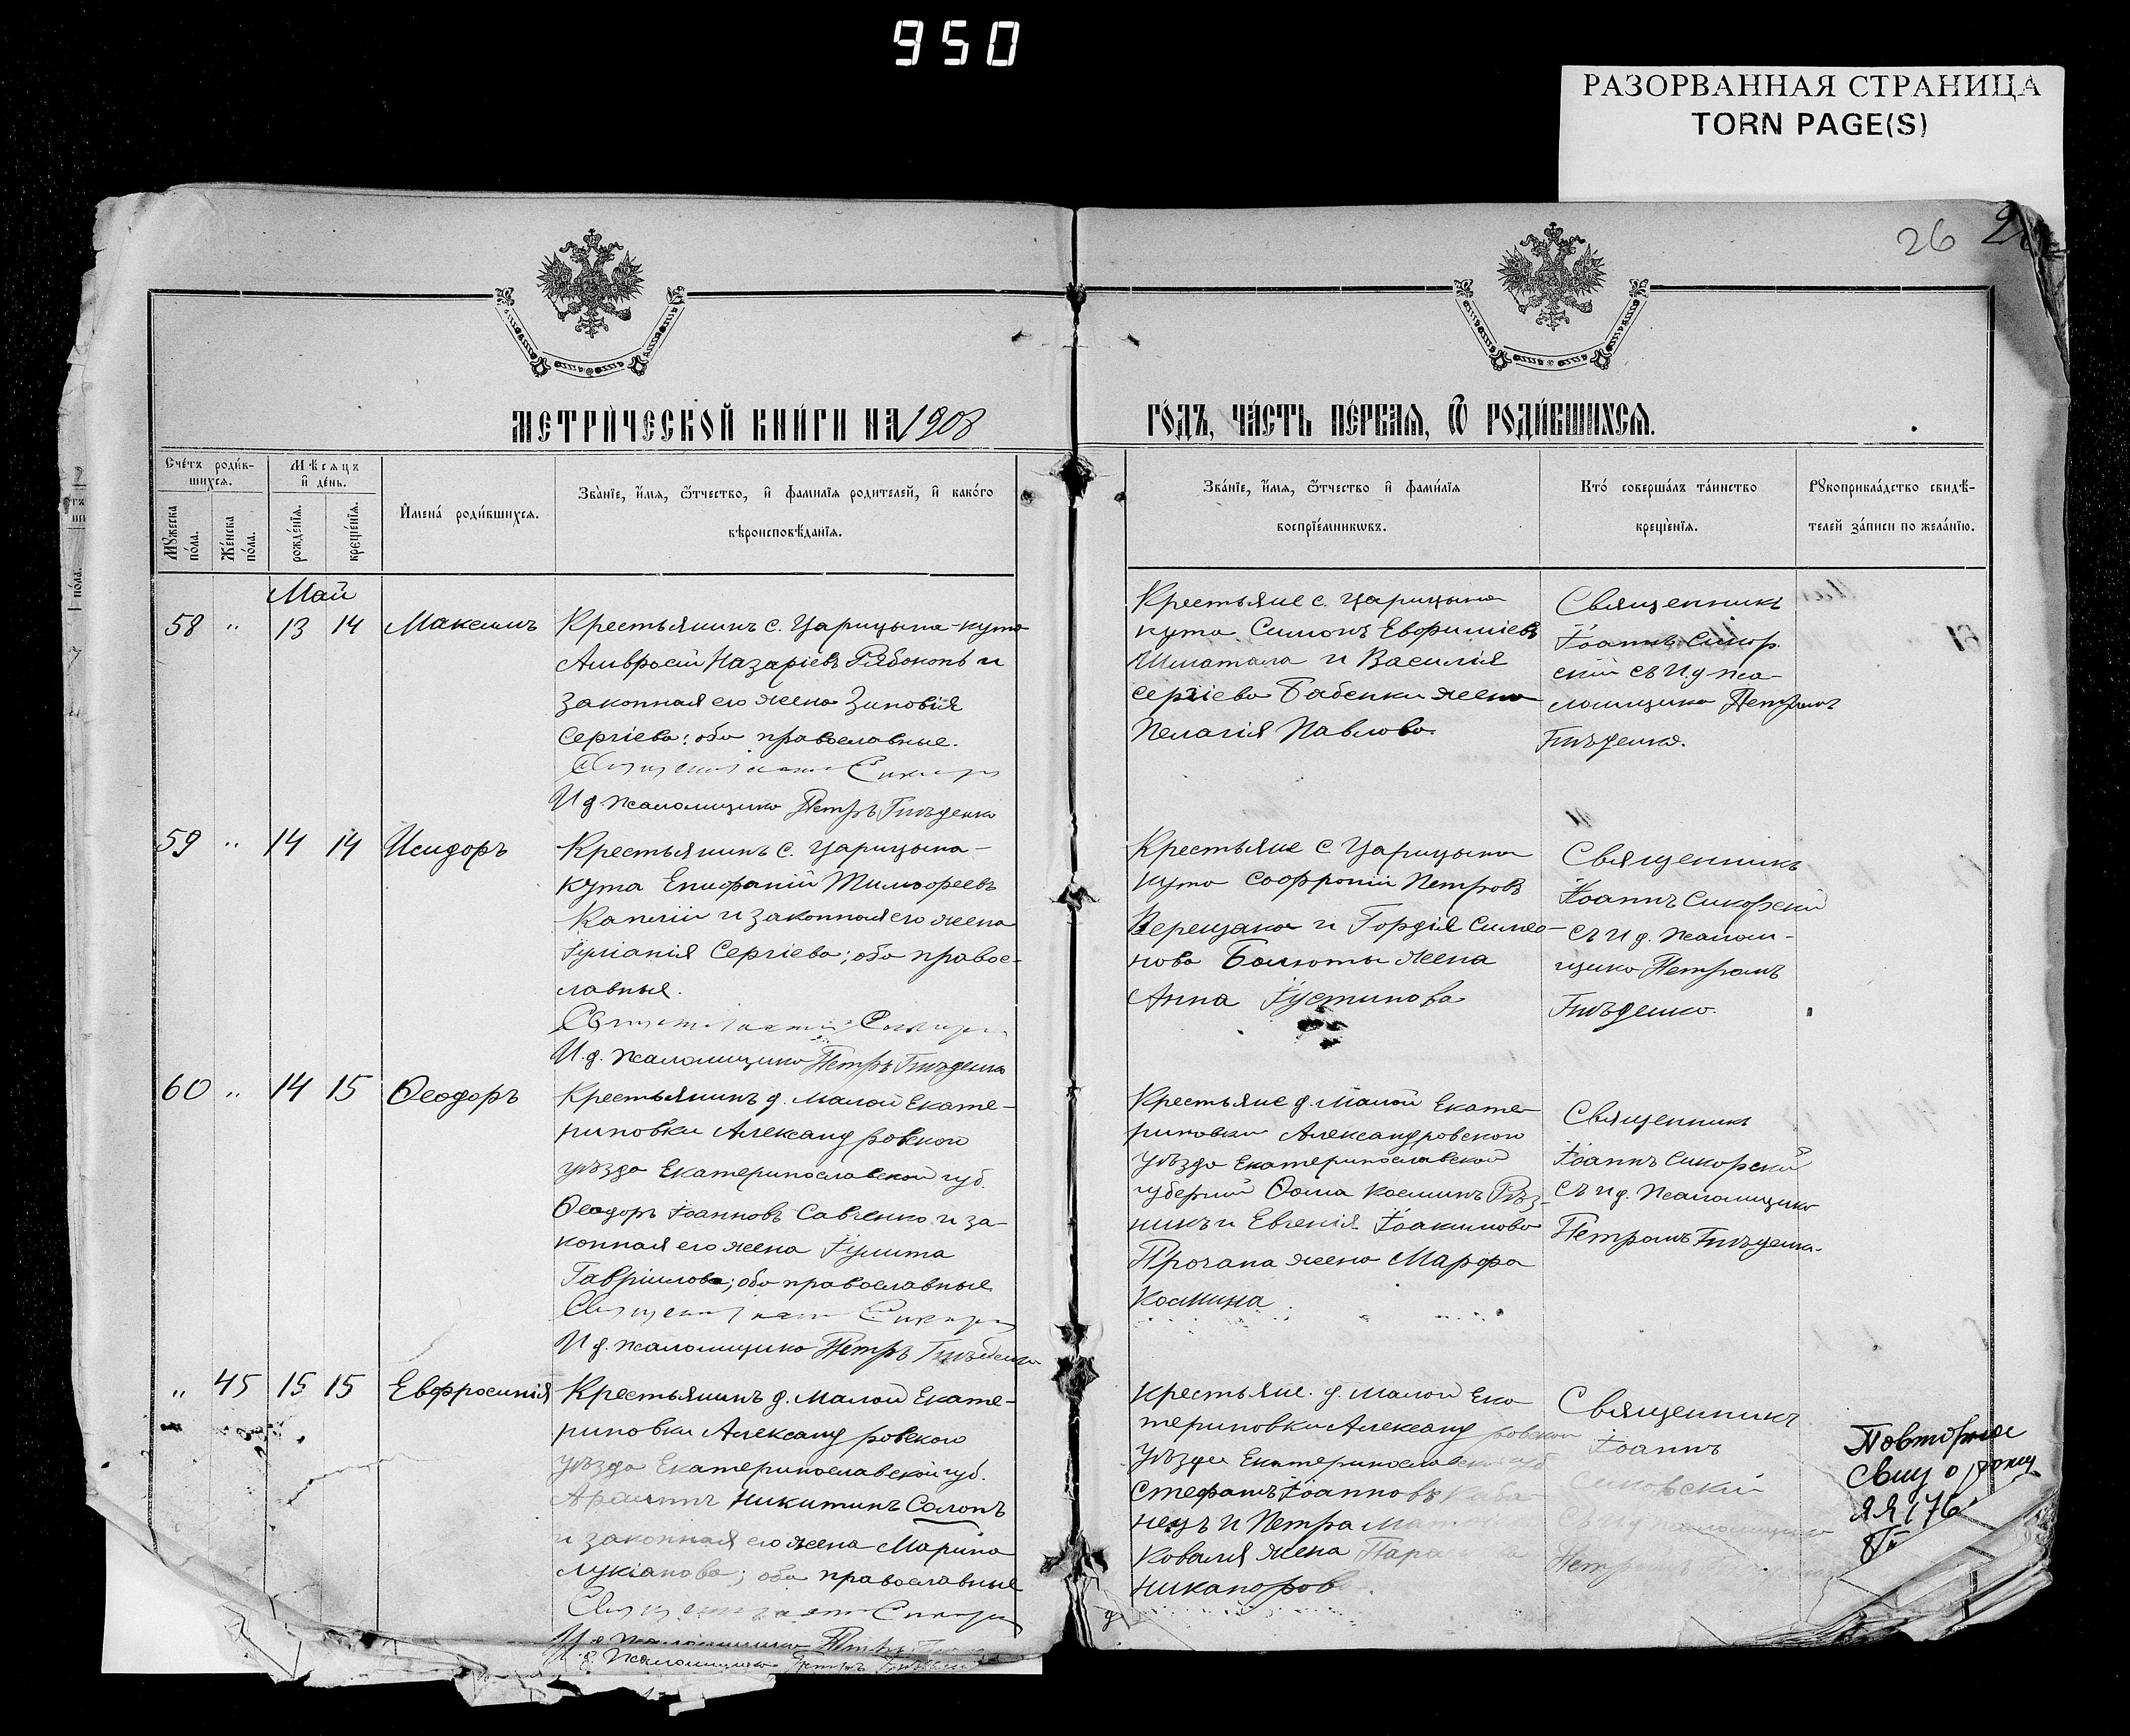 950
РАЗОРВАННАЯ СТРАНИЦА
TORN PAGE(S)
26
МЕТРИ́ЧЕСКОЙ КНИ́ГИ НА 1908
ГО́ДЪ, ЧА́СТЬ ПЕ́РВАѦ, Ѽ РОДИ́ВШИХСѦ.
Сче́тъ роди́в-
шихся.
Мѣсяцъ
и҆ де́нь.
Мꙋ́жеска
по́ла.
Же́нска
по́ла.
рожде́нїѧ.
креще́нїѧ.
И҆мена́ роди́вшихся.
Зва́нїе, и҆́мѧ, ѻ҆́тчество, и҆ фами́лїѧ роди́телей, и҆ како́гѡ
вѣроисповѣ́данїѧ.
Зва́нїе, и҆́мѧ, ѻ҆́тчество и҆ фами́лїѧ
воспрїе́мникѡвъ.
Кто́ соверша́лъ та́инство
креще́нїѧ.
Рꙋкоприкла́дство свидѣ́-
телей за́писи по жела́нїю.
Май
58 " 13 14 Максимъ
Крестьянинъ с. Царицына-кута
Амвросій Назаріевъ Рябоконь и
законная его жена Зиновія
Сергіева; оба православные.
И. д. псаломщика Петръ Гнѣденко
Крестьяне с. Царицына
кута Симонъ Евфиміевъ
Шматала и Василія
Сергіева Бабенки жена
Пелагія Павлова.
Священникъ
Іоаннъ Сикор
скій съ И. д. пса-
ломщика Петромъ
Гнѣденко.
59 " 14 14 Исидоръ
Крестьянинъ с. Царицына-
кута Епифаній Тимофеевъ
и законная его жена
Іуліанія Сергіева; оба правос-
лавные.
И. д. псаломщика Петръ Гнѣденко
Крестьяне с Царицына
кута Софроній Петровъ
Верещака и Гордія Симео-
нова Балюты жена
Анна Іустинова
Священникъ
Іоаннъ Сикорскій
съ И. д. псалом-
щика Петромъ
Гнѣденко.
60 " 14 15 Ѳеодоръ
Крестьянинъ д. Малой Екате-
риновки Александровскаго
уѣзда Екатеринославской губ.
Ѳеодоръ Іоанновъ Савченко и за-
конная его жена Іулита
Гавріилова; оба православные
И. д. псаломщика Петръ Гнѣденко
Крестьяне д. Малой Екате-
риновки Александровскаго
уѣзда Екатеринославской
губерніи Ѳома Косминъ Рѣз-
никъ и Евгенія Іоакимова
Прочана жена Марфа
Космина.
Священникъ
Іоаннъ Сикорскій
съ И д. псаломщика
Петромъ Гнѣденко.
" 45 15 15 Евфросинія
Крестьянинъ д. Малой Екате-
риновки Александровскаго
уѣзда Екатеринославской губ.
Никитинъ Салопъ
и законная его жена Марина
Лукіанова; оба православные
И. д. псаломщика Петръ
Крестьяне. д. Малой Ека
териновки Александровскаго
уѣзда Екатеринославской губ
Стефанъ Іоанновъ Каба
нецъ и Петра
Коваля жена
Никанорова.
Священникъ
Іоаннъ
Сикорскій
съ И д псаломщика
Петромъ
Повторное
176